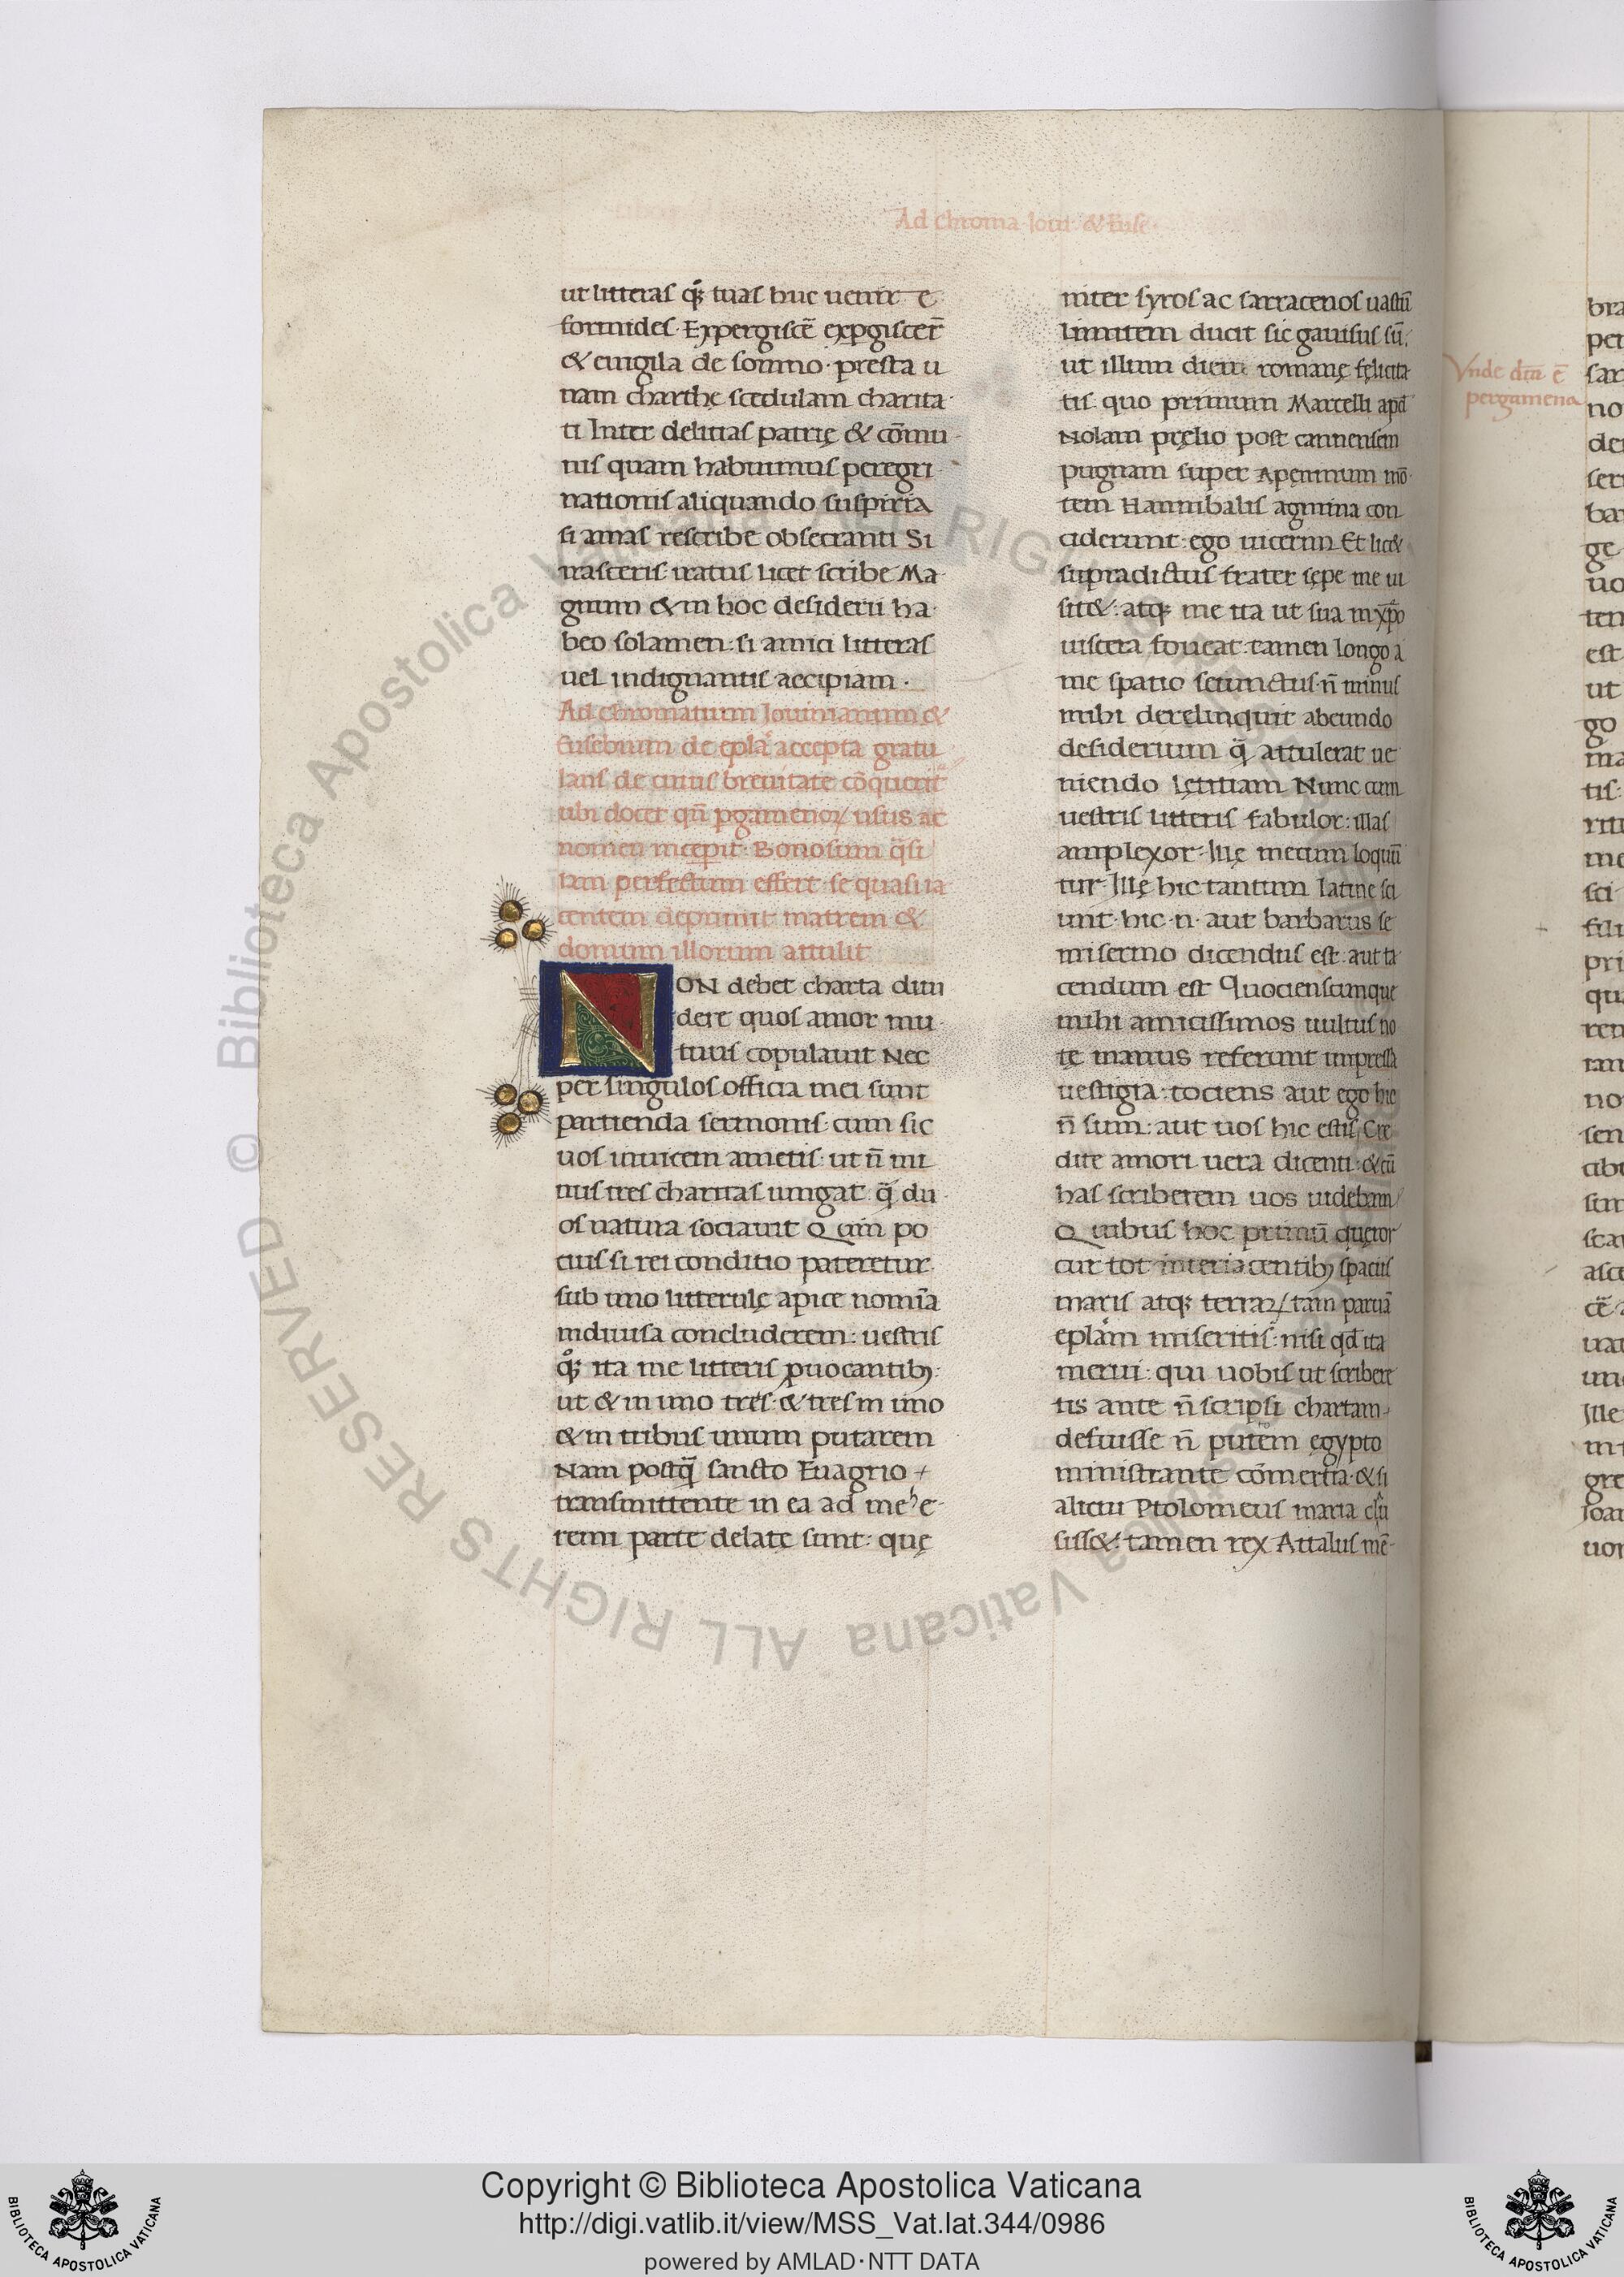 Ad Chroma Ioui & Euse·
ut litteras qꝫ tuas huc uenire
formides· Expergiscē exꝑgiscer̄
& euigila de somno· presta u
nam charthę scedulam charita·
ti Inter delitias patrię & cōmu
nis quam habuimus peregri·
nationis aliquando suspiria
si amas rescribe obsecranti Si
irasceris· iratus licet scribe Ma·
gnum & in hoc desiderii ha·
beo solamen: si amici litteras
uel indignantis accipiam·
Ad chromatium Iouinianum &
Eusebium de epl̄a accepta gratu
lans de cuius breuitate cōquerit̃
ubi docet qn̄ ꝑgamenoꝝ usus ac
nomen inceperit· Bonosum q̄si
iam perfectum effert· se quasi ia
centem deprimit matrem &
domum illorum attulit
NON debet charta diui
dere quos amor mu·
tuus copulauit Nec
per singulos officia mei sunt
partienda sermonis: cum sic
uos inuicem ametis: ut n̄ mi
nus tres charitas iungat q̄ du·
os natura sociauit Quin po
cius si rei conditio pateretur·
sub uno litterulę apice nomīa
indiuisa concluderem: uestris
qꝫ ita me litteris ꝓuocantibꝫ·
ut & in uno tres· & tres in uno
& in tribus unum putarem
Nam postq̄ sancto Euagrio
transmittente in ea ad me he·
remi parte delatę sunt: quę
inter syros ac sarracenos uastū
limitem ducit sic gauisus sū:
ut illum diem romanę felicita
tis· quo primum Marcelli apd̄
Nolam pręlio post cannensem
pugnam super Apenninum mō·
tem Hannibalis agmina con
ciderunt: ego uicerim Et lic&
supradictus frater sępe me ui
sit&: atqꝫ me ita ut sua in xp̄o
uiscera foueat: tamen longo a
me spatio seiunctus· n̄ minus
mihi derelinquit abeundo
desiderium q̄ attulerat ue
niendo lętitiam Nunc cum
uestris litteris fabulor: illas
amplexor· Illę mecum loquū
tur· Illę hic tantum latine sci
unt· hic·n· aut barbarus se
misermo dicendus est: aut ta·
cendum est Quocienscunque
mihi amicissimos uultus no
tę manus referunt impressa
uestigia: tociens aut ego hic
n̄ sum: aut uos hic estis Cre
dite amori uera dicenti: & cū
has scriberem uos uidebam
Quibus hoc primū quęror
cur tot interiacentibꝫ spaciis
maris atqꝫ terraꝝ tam paruā
epl̄am miseritis: nisi qd̄ ita
merui: qui uobis ut scribere
tis ante n̄ scripsi chartam
defuisse n̄ putem ęgypto
ministrante cōmertia· & si
alicui Ptolomeus maria clau
siss&: tamen rex Attalus mē·
Vnde dictū ē
pergamena
© Biblioteca Apostolica Vaticana ALL RIGHTS RESERVED
Copyright © Biblioteca Apostolica Vaticana
http://digi.vatlib.it/view/MSS_Vat.lat.344/0986
powered by AMLAD·NTT DATA
BIBLIOTECA APOSTOLICA VATICANA
BIBLIOTECA APOSTOLICA VATICANA